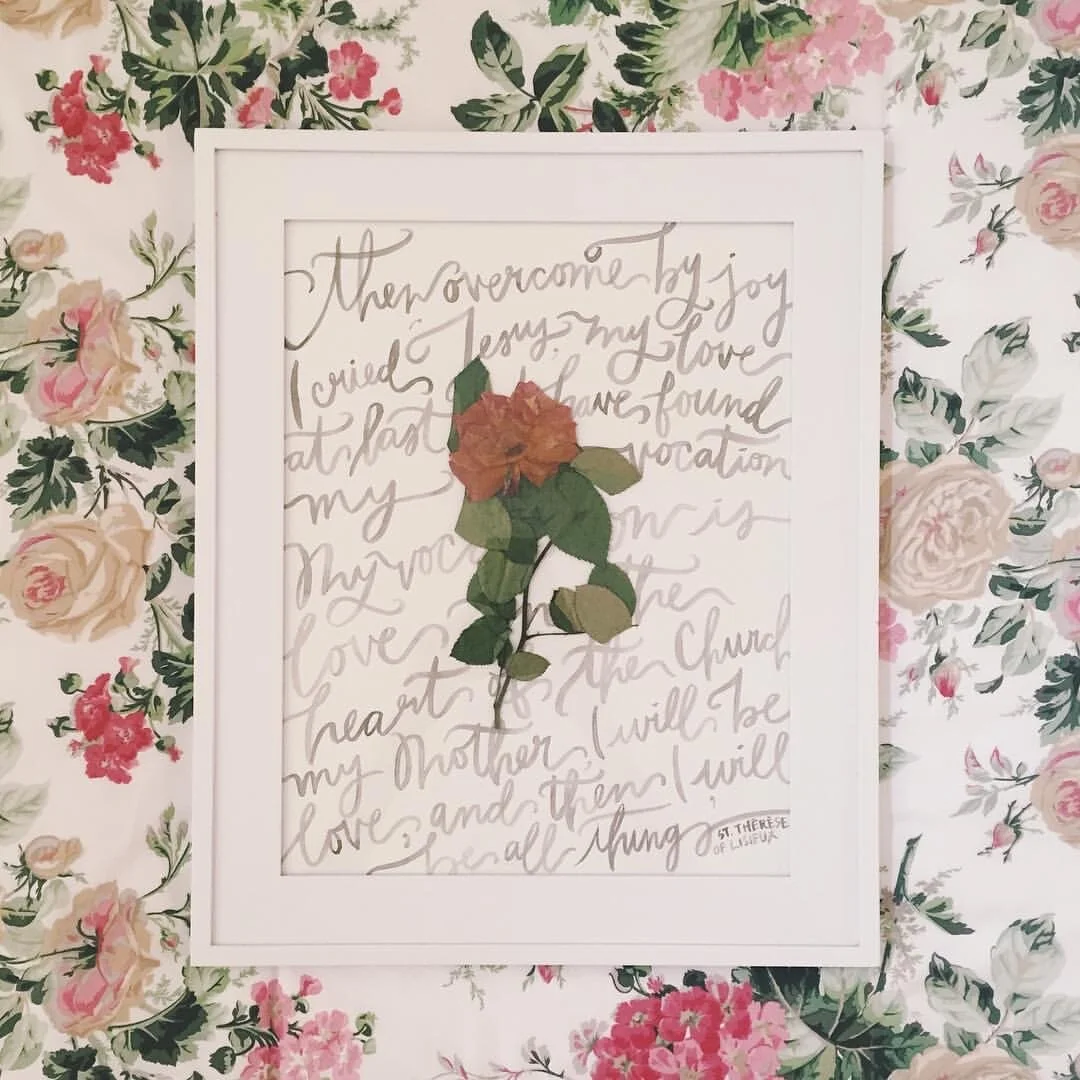 then overcome by joy
I cried Jesus, my love
at last have found
my vocation
My is
love the
heart of the Church
my Mother, I will be
love, and then I will
be all things
ST. THÉRÈSE
OF LISIEUX